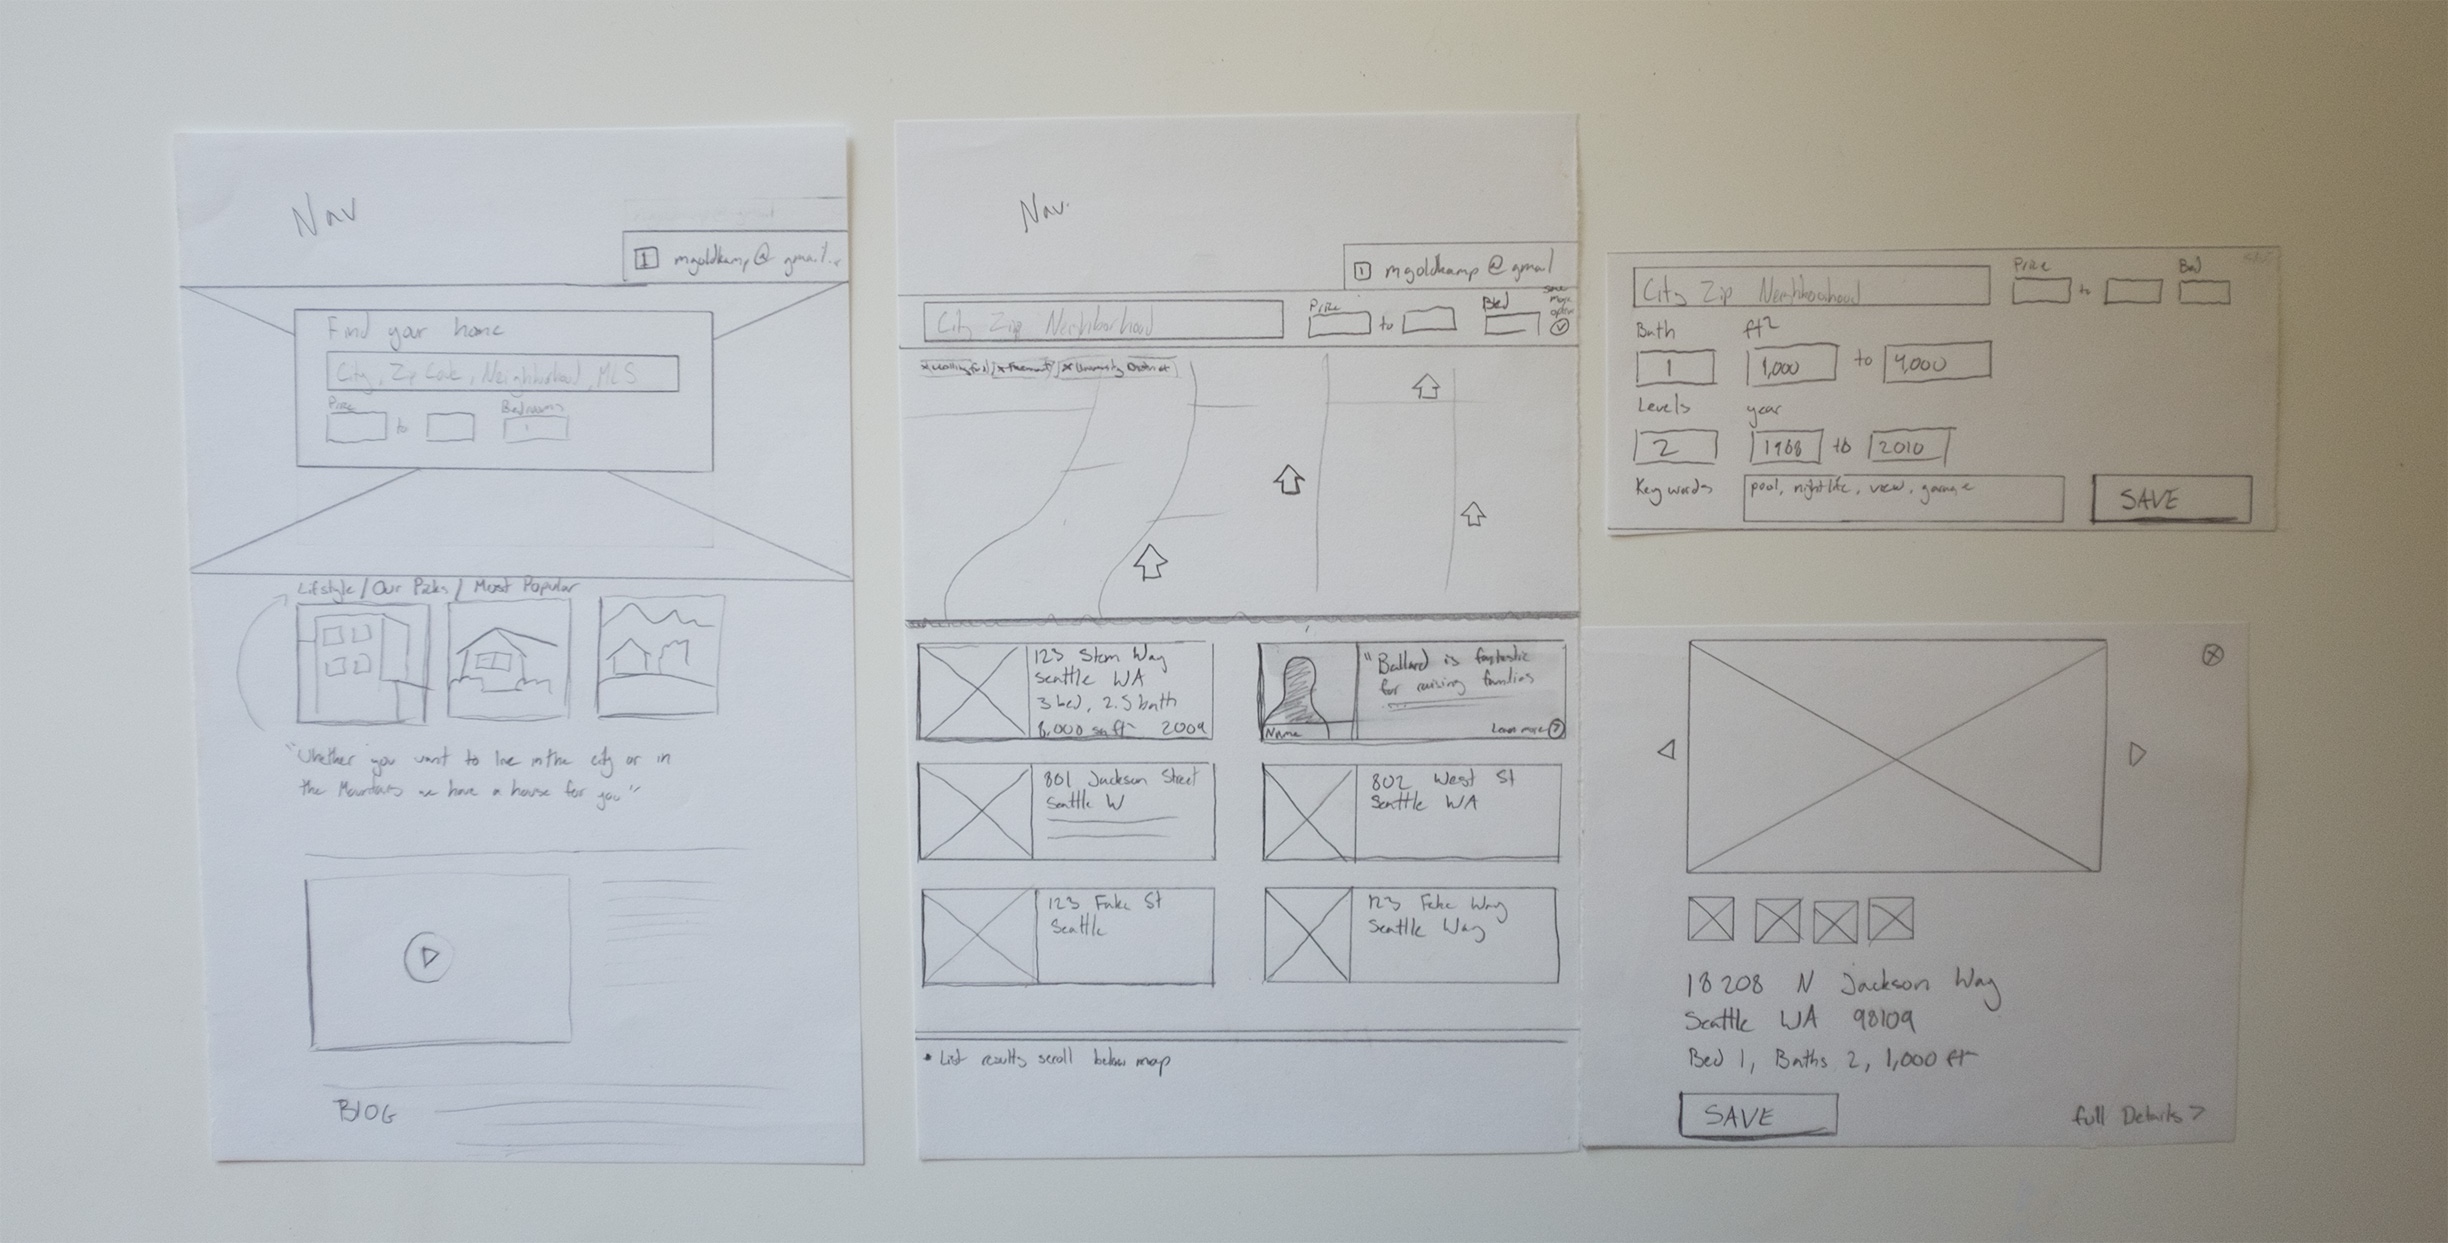 Nav
1 mgoldkamp@gmail.c
Find your home
City, Zip Code, Neighborhood, MLS
Price
to
Bedrooms
1
Lifstyle / Our Picks / Most Popular
"Whether you want to live in the city or in
the Mountains we have a house for you"
BLOG
Nav.
1 mgoldkamp@gmail
City Zip Neighborhood
Price
to
Bed
x Wallingford x Freemont x University District
123 Stom Way
Seattle WA
3 bed, 2.5 bath
8,000 sq ft 2009
"Ballard is fantastic
for raising families
Name
Learn more >
801 Jackson Street
Seattle W
802 West St
Seattle WA
123 Fake St
Seattle
123 Fake Way
Seattle Way
• List results scroll below map
City Zip Neighborhood
Price
to
Bed
Bath ft2
1 1,000 to 4,000
Levels year
2 1968 to 2010
Key words pool, nightlife, view, garage
SAVE
18208 N Jackson Way
Seattle WA 98109
Bed 1, Baths 2, 1,000 ft
SAVE
full Details >